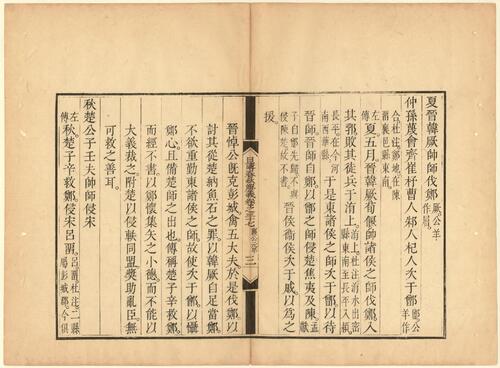 夏晉韓厥帥師伐鄭厥公羊作屈
仲孫蔑會齊崔杼曹人邾人杞人次于鄫鄫公羊作
合杜注鄫地在陳留襄邑縣東南
左傳夏五月晉韓厥荀偃帥諸侯之師伐鄭入
其郛敗其徒兵于洧上洧上杜注洧水出密縣東南至長平入潁
長平在今河南西華縣于是東諸侯之師次于鄫以待
晉師晉師自鄭以鄫之師侵楚焦夷及陳孟獻
子自鄫先歸不與侵陳楚故不書晉侯衛侯次于戚以為之
援
日講春秋解義卷之三十七 襄公元年 三
晉悼公既克彭城禽五大夫於是伐鄭以
討其從楚納魚石之罪以韓厥自足當鄭
不欲重勤東諸侯之師故使次于鄫以懾
鄭心且備楚師之出也傳稱楚子辛救鄭
而經不書以鄭懷集矢之小德而不能以
大義裁之附楚以侵軼同盟奬助亂臣無
可救之善耳
秋楚公子壬夫帥師侵宋
左傳秋楚子辛救鄭侵宋呂留呂留杜注二縣屬彭城郡今俱